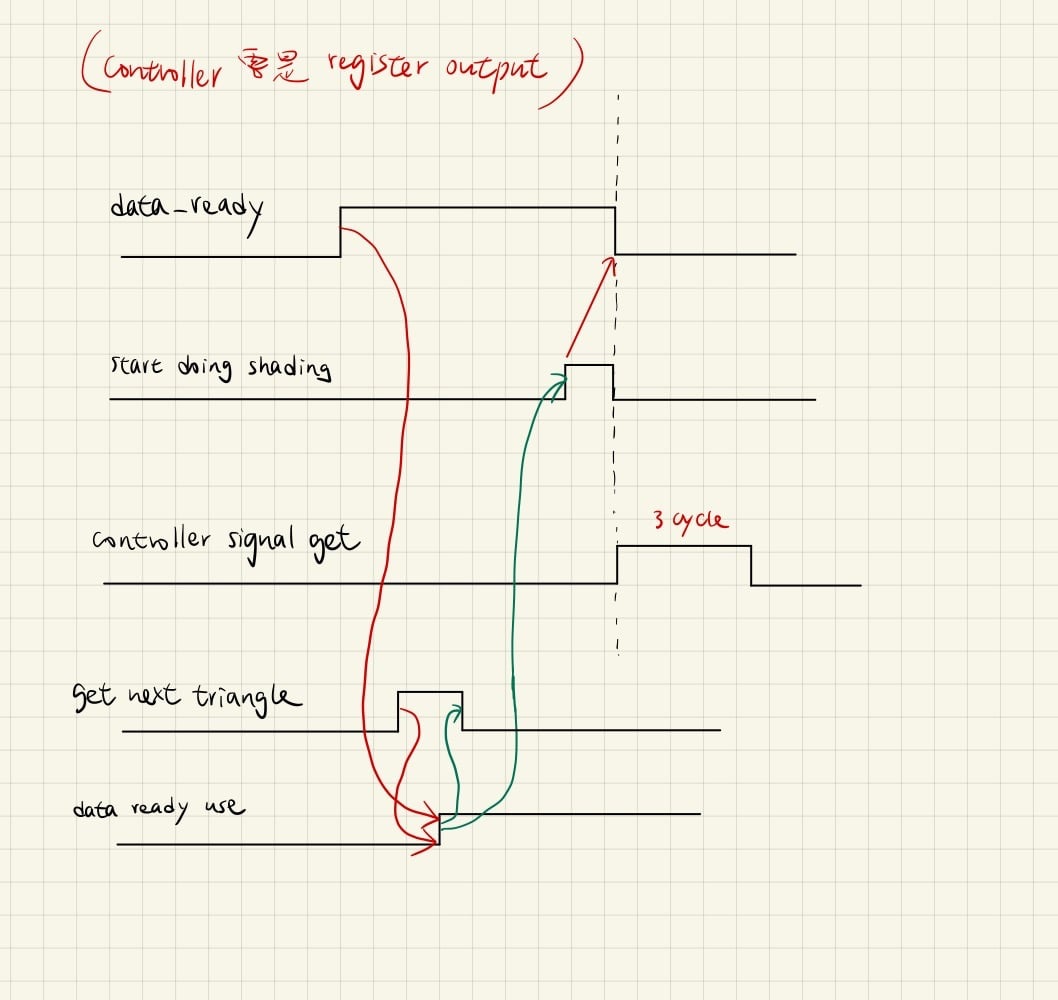 (Controller 需是 register output)
data_ready
start doing shading
controller signal get
3 cycle
get next triangle
data ready use